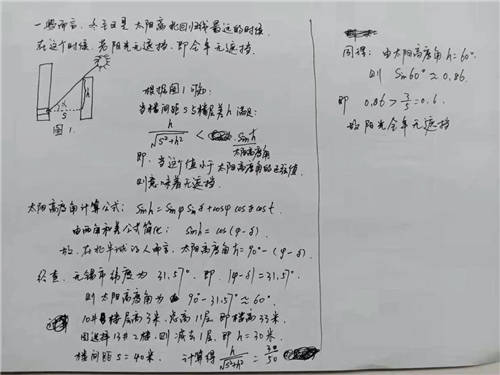 一般而言，冬至日是太阳离北回归线最远的时候，
在这个时候，若阳光无遮挡，即全年无遮挡。
h
S
图1.
根据图1可知：
当楼间距S与楼层差h满足：
h/√(S²+h²) < Sin h
太阳高度角
即，当这个值小于太阳高度角的正弦值，
则意味着无遮挡
太阳高度角计算公式：Sin h = Sinφ Sinδ + cosφ cosδ cost.
由两角和差公式简化： Sin h = cos(φ-δ)
故，在北半球的人而言，太阳高度角h=90°-(φ-δ)
经查，无锡市纬度为31.57°. 即 |φ-δ|=31.57°.
则太阳高度角为 90°-31.57°≈60°.
10# 楼层高3米，总高11层，即楼高33米.
因选择13#2楼，则减去1层，即h=30米
楼间距S=40米. 计算得 h/√(S²+h²) = 30/50
同得：由太阳高度角h=60°.
则 Sin60°≈0.86.
即 0.86>3/5=0.6.
故阳光全年无遮挡